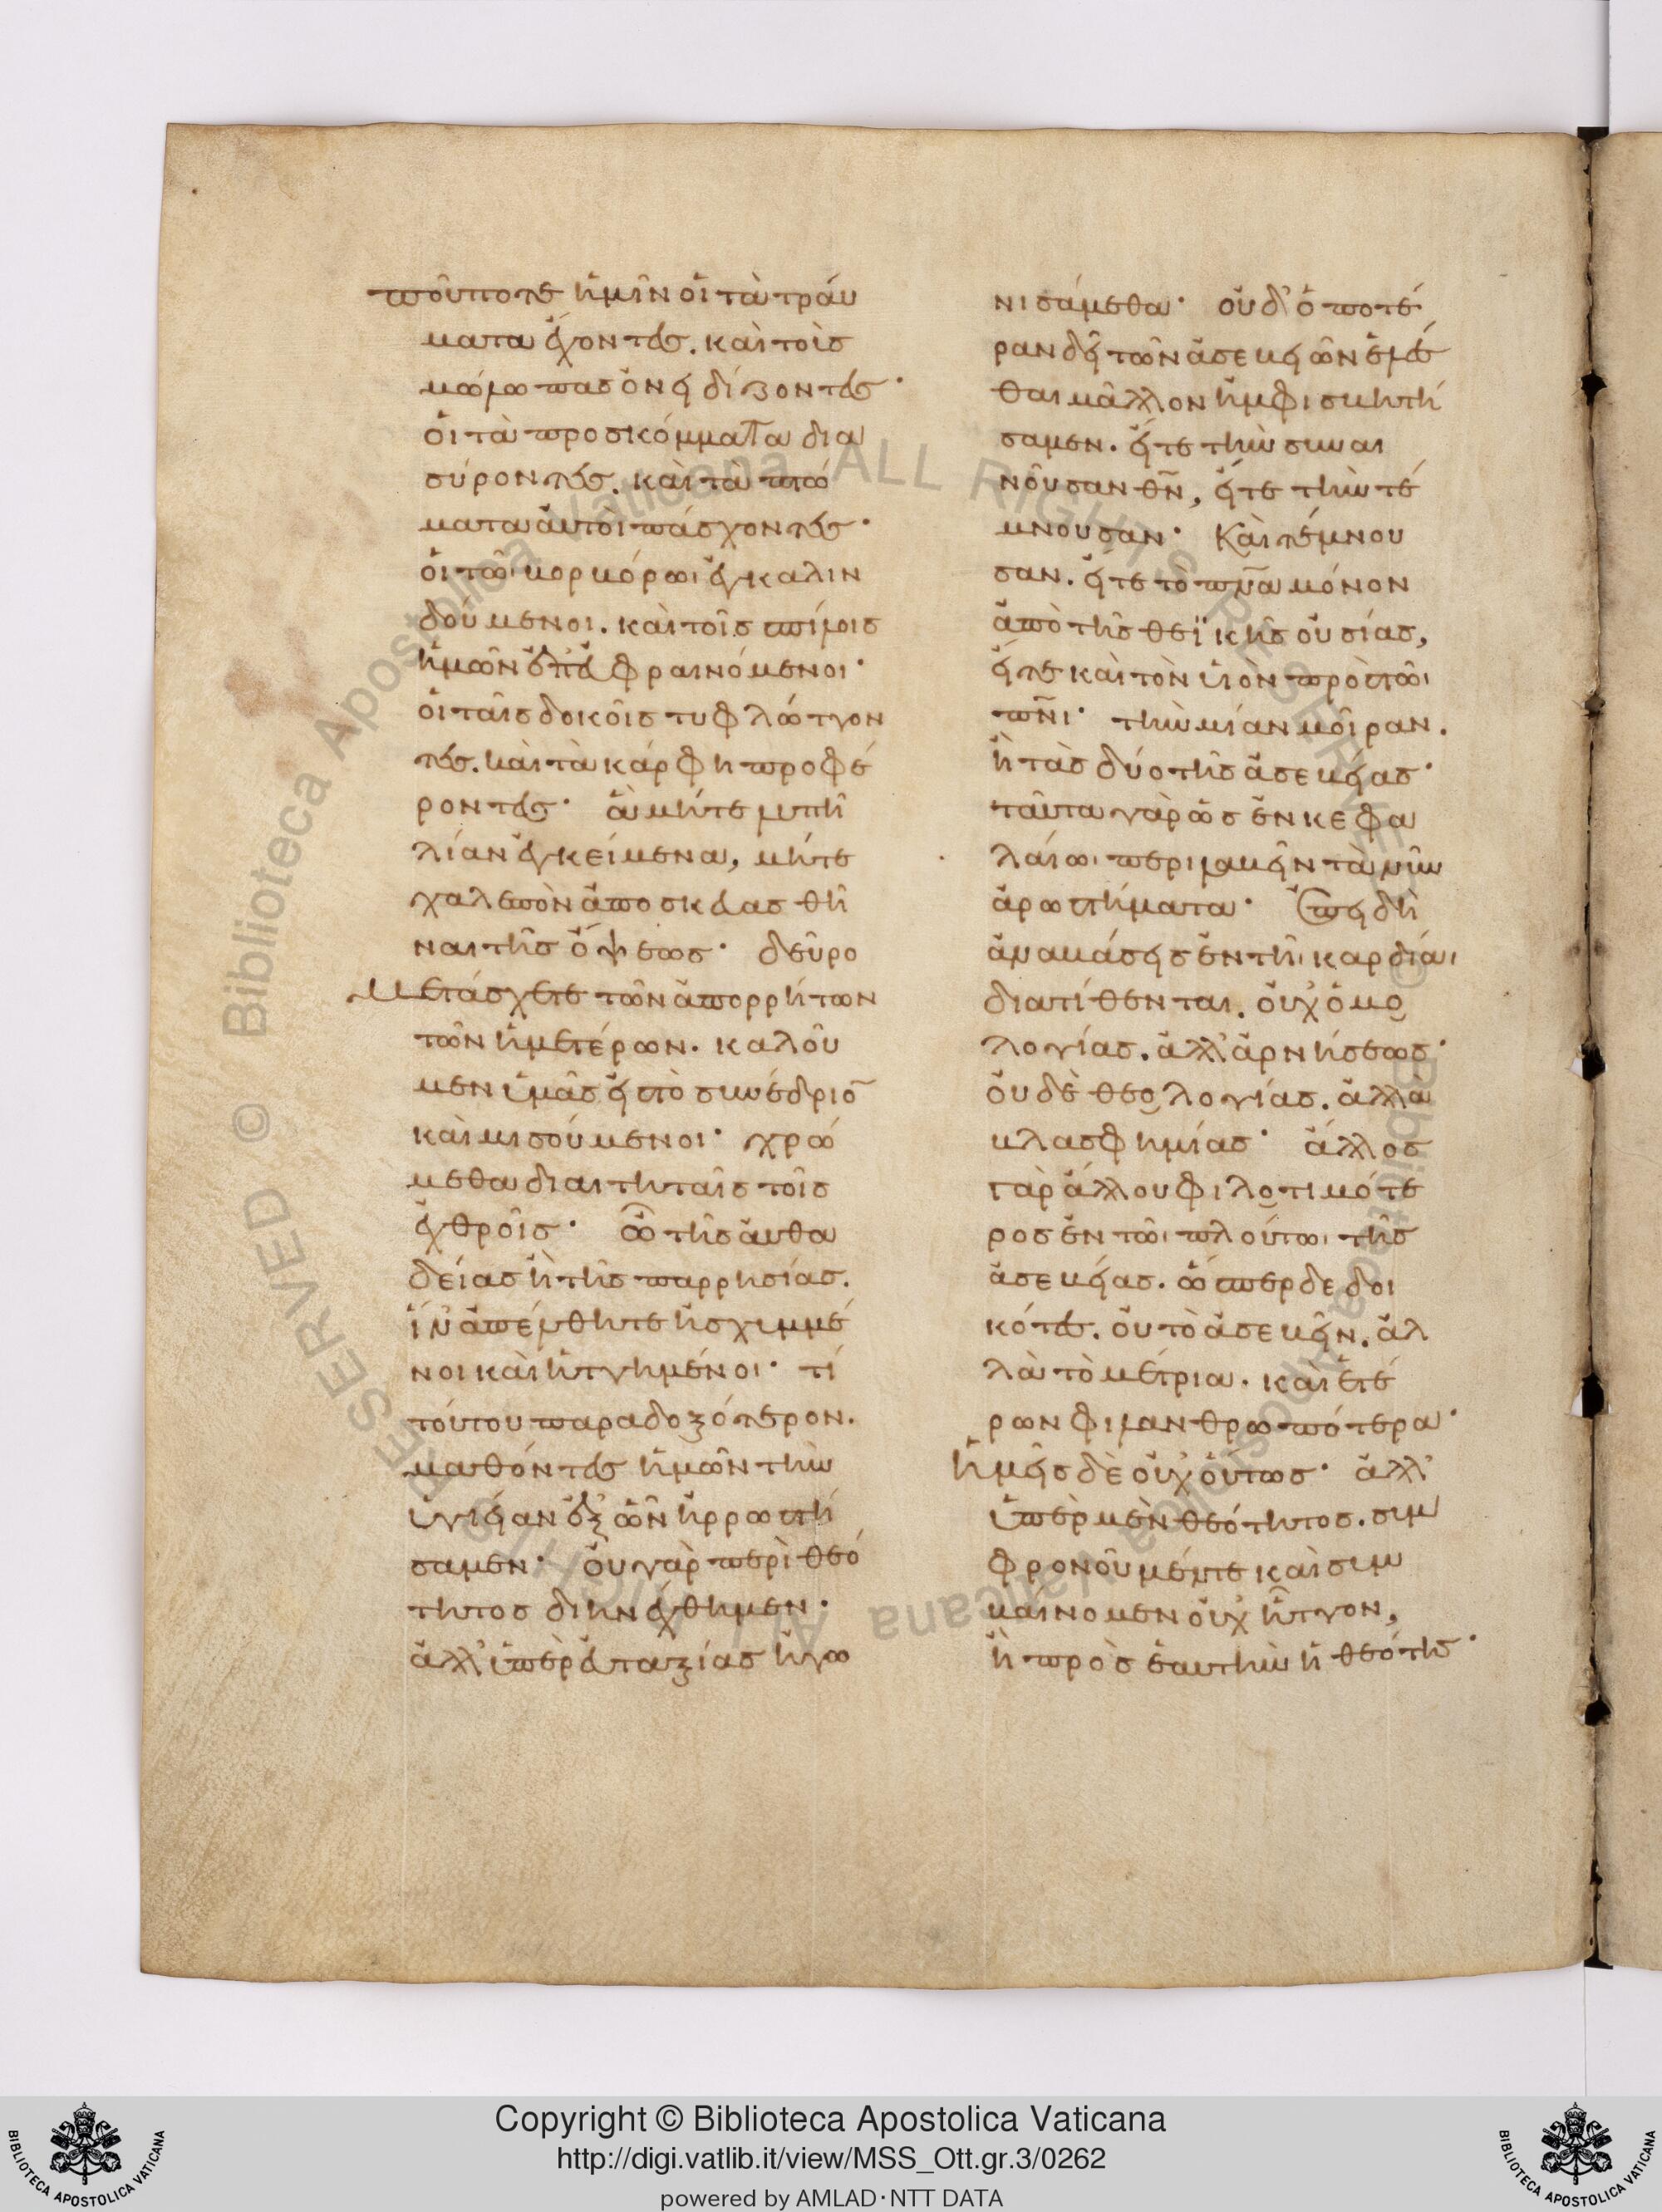 ποῦποτε ἡμῖν οἱ τὰ τραύ
ματα ἔχοντες. καὶ τοῖς
μώλωπας ὀνειδίζοντες·
οἱ τὰ προσκόμματα δια
σύροντες. καὶ τὰ πτώ
ματα αὐτοὶ πάσχοντες·
οἱ τῶι βορβόρωι ἐγκαλιν
δούμενοι. καὶ τοῖς σπίλοις
ἡμῶν ἐπευφραινόμενοι·
οἱ ταῖς δοκοῖς τυφλώττον
τες. καὶ τὰ κάρφη προφέ
ροντες· ἃ μήτε πληγῆι
λίαν ἐγκείμενα, μήτε
χαλεπὸν ἀποσκευασθῆ
ναι τῆς ὄψεως· δεῦρο
μετάσχετε τῶν ἀπορρήτων
τῶν ἡμετέρων. καλοῦ
μεν ὑμᾶς εἰς τὸ συνέδριο̄
καὶ μισούμενοι· χρώ
μεθα διαιτηταῖς τοῖς
ἐχθροῖς· ὢ τῆς αὐθα
δείας ἢ τῆς παρρησίας.
ἵν' ἀπέλθητε ἠσχυμμέ
νοι καὶ ἡττημένοι· τί
τούτου παραδοξότερον.
μαθόντες ἡμῶν τὴν
ὑγιείαν ἐξ ὧν ἠρρωστή
σαμεν· οὐ γὰρ περὶ θεό
τητος διηνέχθημεν·
ἀλλ' ὑπὲρ εὐταξίας ἠγω
νισάμεθα· οὐδ' ὁποτέ
ραν δεῖ τῶν ἀσεβειῶν ἑλέσ
θαι μᾶλλον ἠμφισβητή
σαμεν. εἴτε τὴν συναι
ροῦσαν θν̄, εἴτε τὴν τέ
μνουσαν· Καὶ τέμνου
σαν. εἴτε τὸ πν̄α μόνον
ἀπὸ τῆς θεϊκῆς οὐσίας,
εἴτε καὶ τὸν υἱὸν πρὸς τῶι
πν̄ι· τὴν μίαν μοῖραν.
ἢ τὰς δύο τῆς ἀσεβείας·
ταῦτα γὰρ ὡς ἐν κεφα
λαίωι περιλαβεῖν τὰ νῦν
ἀρωστήματα· Ἐπειδὴ
ἀναβάσεις ἐν τῆι καρδίαι
διατίθενται. οὐχ ὁμο
λογίας. ἀλλ' ἀρνήσεως·
οὐδὲ θεολογίας. ἀλλὰ
βλασφημίας· ἄλλος
γὰρ ἄλλου φιλοτιμότε
ρος ἐν τῶι πλούτωι τῆς
ἀσεβείας. ὥσπερ δεδοι
κότες. οὐ τὸ ἀσεβεῖν. ἀλ
λὰ τὸ μέτρια. καὶ ἑτέ
ρων φιλανθρωπότερα·
ἡμεῖς δὲ οὐχ οὕτως· ἀλλ'
ὑπὲρ μὲν θεότητος. συμ
φρονοῦμέν τε καὶ συμ
βαίνομεν οὐχ ἧττον,
ἢ πρὸς ἑαυτὴν ἡ θεότης·
Copyright © Biblioteca Apostolica Vaticana
http://digi.vatlib.it/view/MSS_Ott.gr.3/0262
powered by AMLAD·NTT DATA